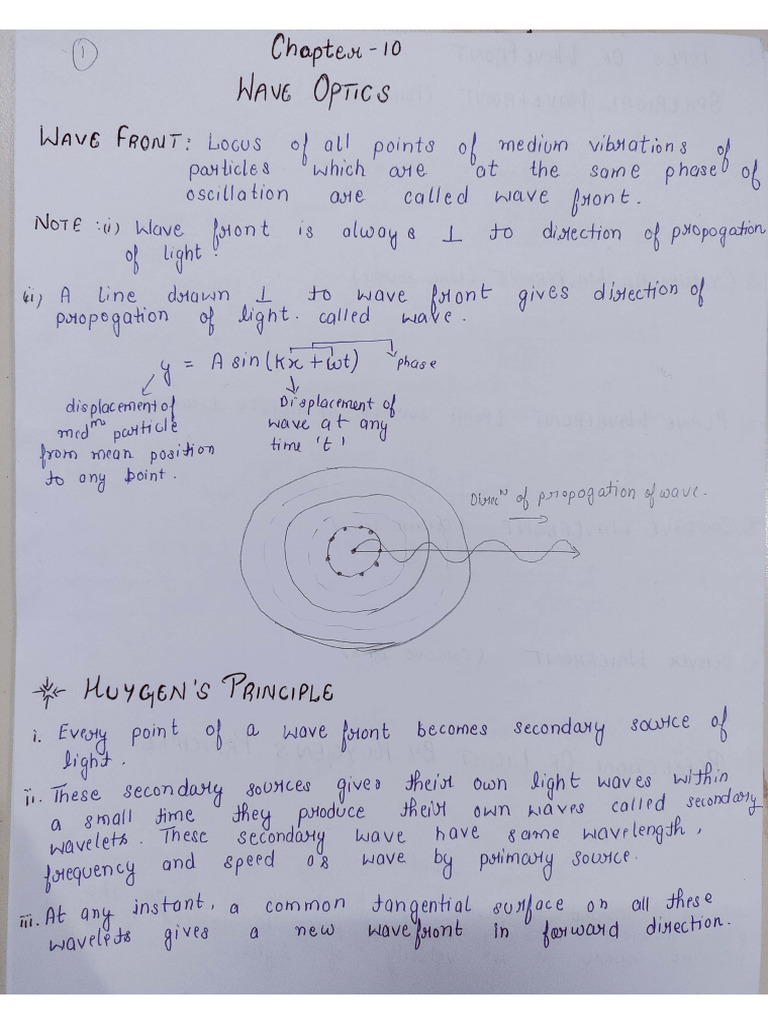 1
Chapter-10
WAVE OPTICS
WAVE FRONT: Locus of all points of medium vibrations of
particles which are at the same phase of
oscillation are called wave front.
NOTE :(i) Wave front is always ⊥ to direction of propogation
of light.
(ii) A line drawn ⊥ to wave front gives direction of
propogation of light. called wave.
y = A sin(kx + ωt) phase
displacement of
medᵐ particle
from mean position
to any point.
Displacement of
wave at any
time 't'
Direcⁿ of propogation of wave.
HUYGEN'S PRINCIPLE
i. Every point of a wave front becomes secondary source of
light.
ii. These secondary sources gives their own light waves within
a small time they produce their own waves called secondary
wavelets. These secondary wave have same wavelength,
frequency and speed as wave by primary source.
iii. At any instant, a common tangential surface on all these
wavelets gives a new wavefront in forward direction.